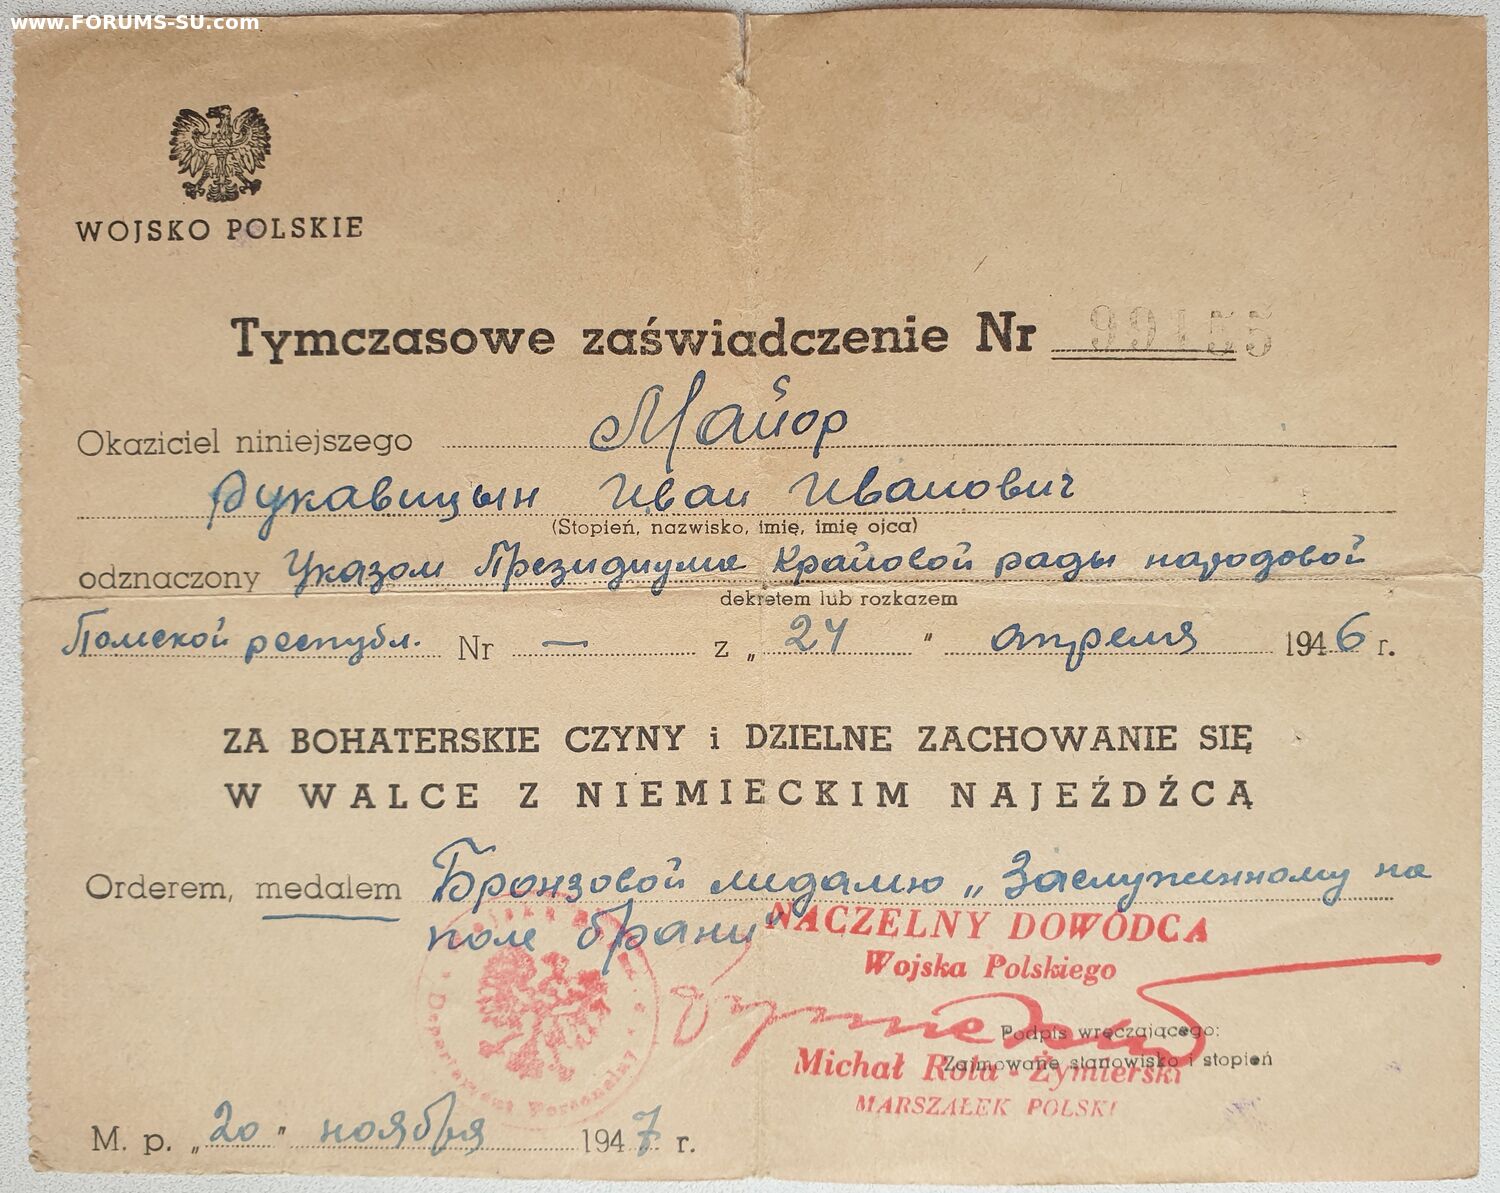 www.FORUMS-SU.com
WOJSKO POLSKIE
Tymczasowe zaświadczenie Nr 99155
Okaziciel niniejszego Майор
Рукавицын Иван Иванович
(Stopień, nazwisko, imię, imię ojca)
odznaczony Указом Президиума Крайовой рады народовой
dekretem lub rozkazem
Польской республ. Nr — z „ 24 " апреля 1946 r.
ZA BOHATERSKIE CZYNY i DZIELNE ZACHOWANIE SIĘ
W WALCE Z NIEMIECKIM NAJEŹDŹCĄ
Orderem, medalem Бронзовой медалью „Заслуженному на
поле брани"
NACZELNY DOWÓDCA
Wojska Polskiego
Podpis wręczającego:
Zajmowane stanowisko i stopień
Michał Rola-Żymierski
MARSZAŁEK POLSKI
Departament Personalny
M. p. „20" ноября 1947 r.